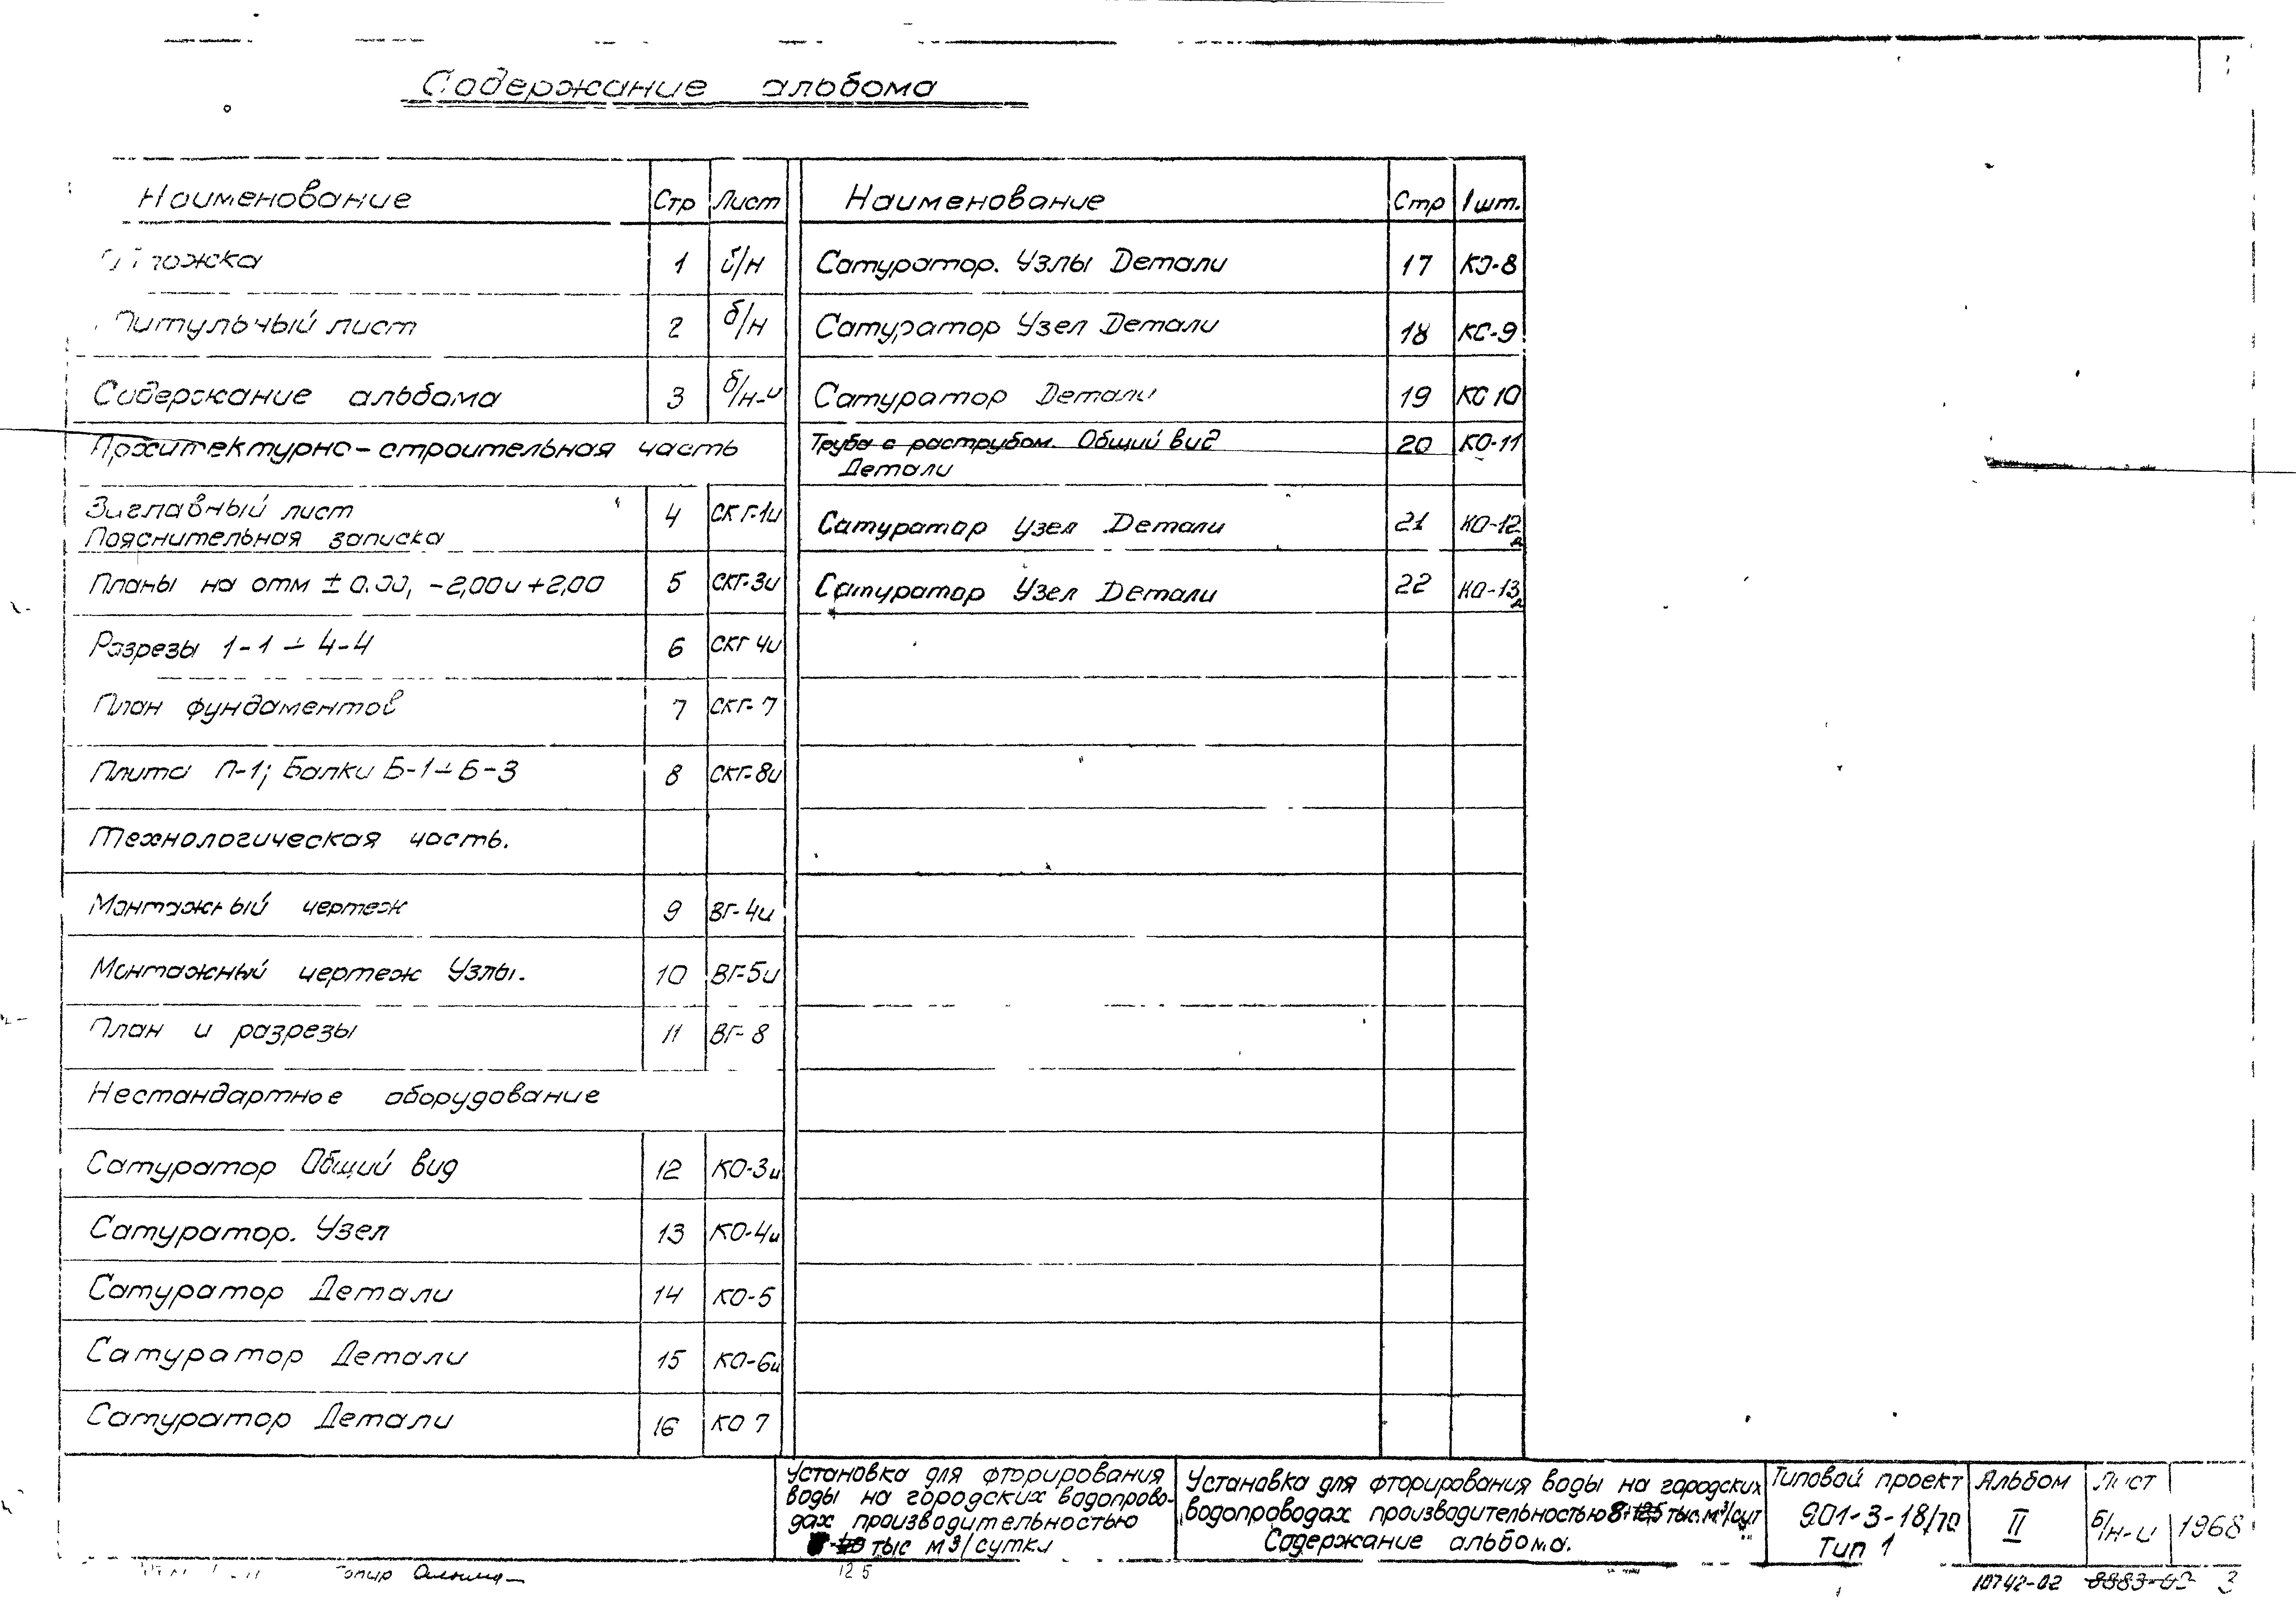 Содержание альбома
Наименование Стр Лист
1 б/н
Титульный лист 2 б/н
Содержание альбома 3 б/н-и
Архитектурно-строительная часть
Заглавный лист
Пояснительная записка 4 СКГ-1и
Планы на отм ± 0.00, -2,00 и +2,00 5 СКГ-3и
Разрезы 1-1 ÷ 4-4 6 СКГ 4и
План фундаментов 7 СКГ-7
Плита П-1; Балки Б-1 ÷ Б-3 8 СКГ-8и
Технологическая часть.
Монтажный чертеж 9 ВГ-4и
Монтажный чертеж Узлы. 10 ВГ-5и
План и разрезы 11 ВГ-8
Нестандартное оборудование
Сатуратор Общий вид 12 КО-3и
Сатуратор. Узел 13 КО-4и
Сатуратор Детали 14 КО-5
Сатуратор Детали 15 КО-6и
Сатуратор Детали 16 КО 7
Наименование Стр 1 шт.
Сатуратор. Узлы Детали 17 КО-8
Сатуратор Узел Детали 18 КО-9
Сатуратор Детали 19 КО 10
Труба с раструбом. Общий вид 20 КО-11
Детали
Сатуратор Узел Детали 21 КО-12
Сатуратор Узел Детали 22 КО-13
Установка для фторирования
воды на городских водопрово-
дах производительностью
тыс м3/сутки
Установка для фторирования воды на городских
водопроводах производительностью 8÷12,5 тыс. м³/сут
Содержание альбома.
Типовой проект
901-3-18/70
Тип 1
Альбом
II
Лист
Б/н-и
1968
Копир
125
10742-02 8883-02 3